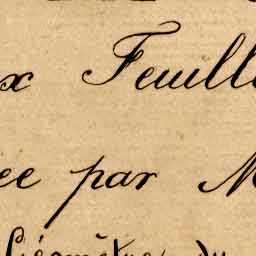 x Feuill
ée par M
Géomètre du